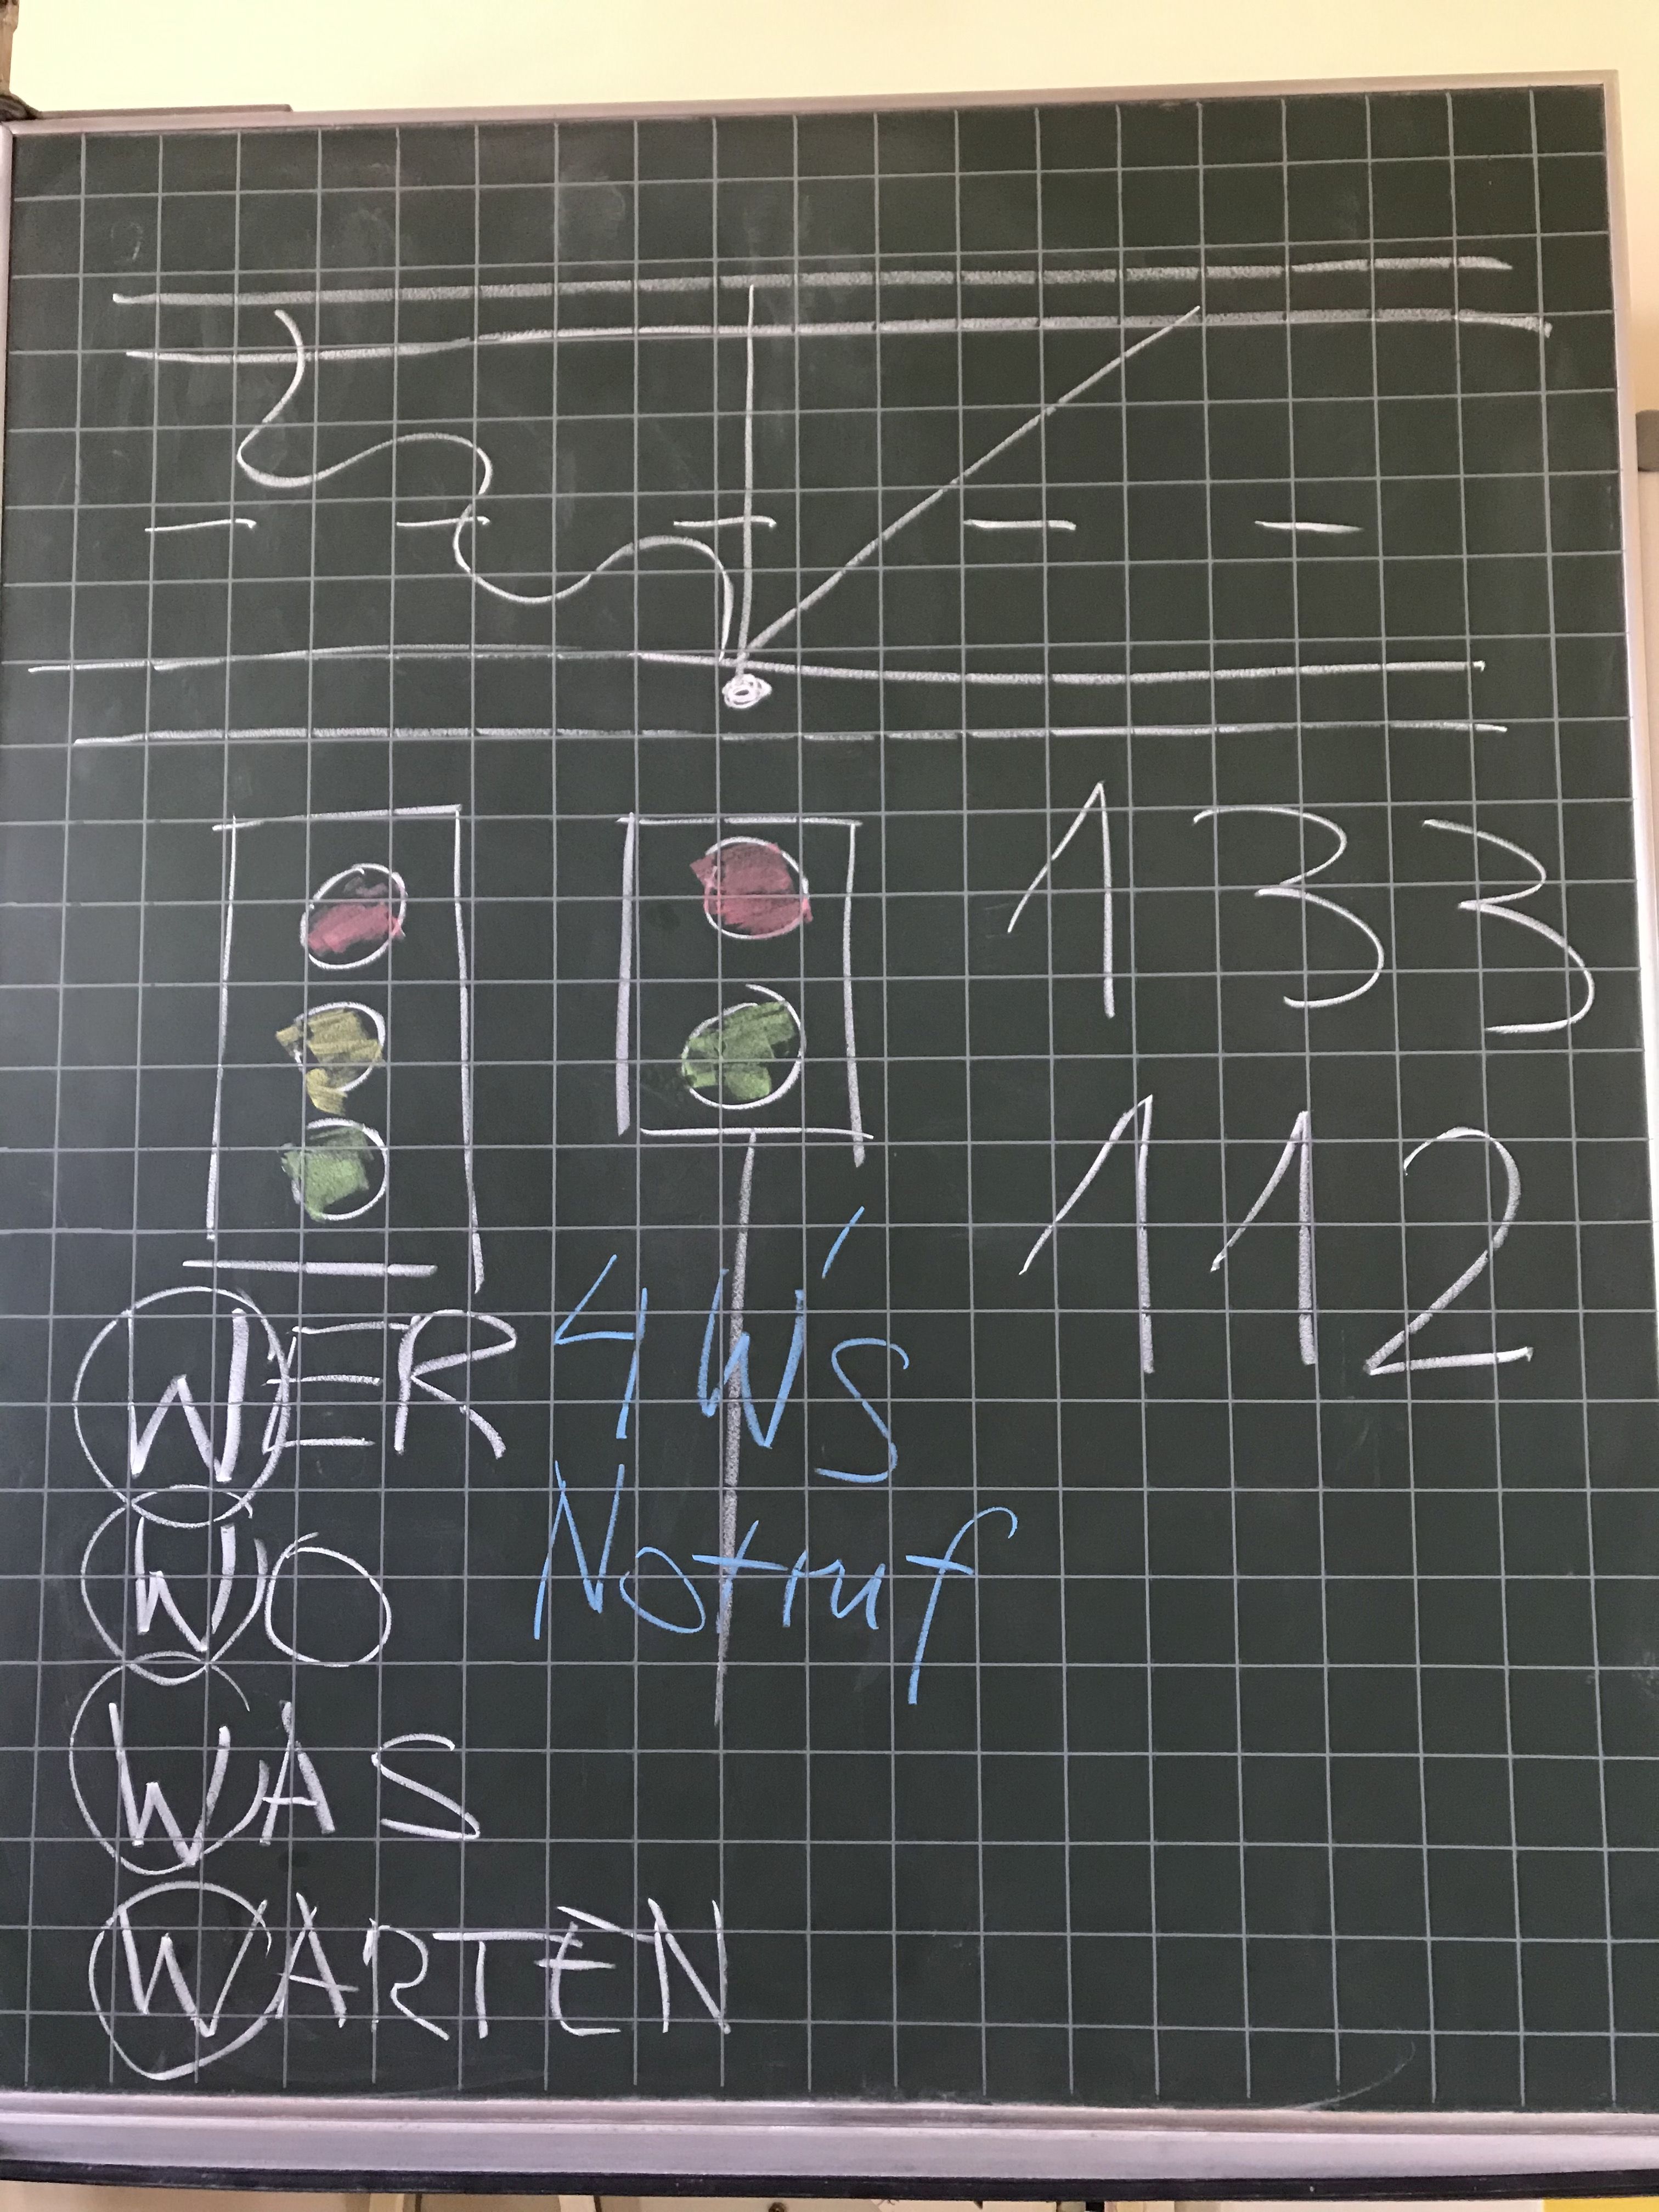 133
112
WER
WO
WAS
WARTEN
4 W's
Notruf